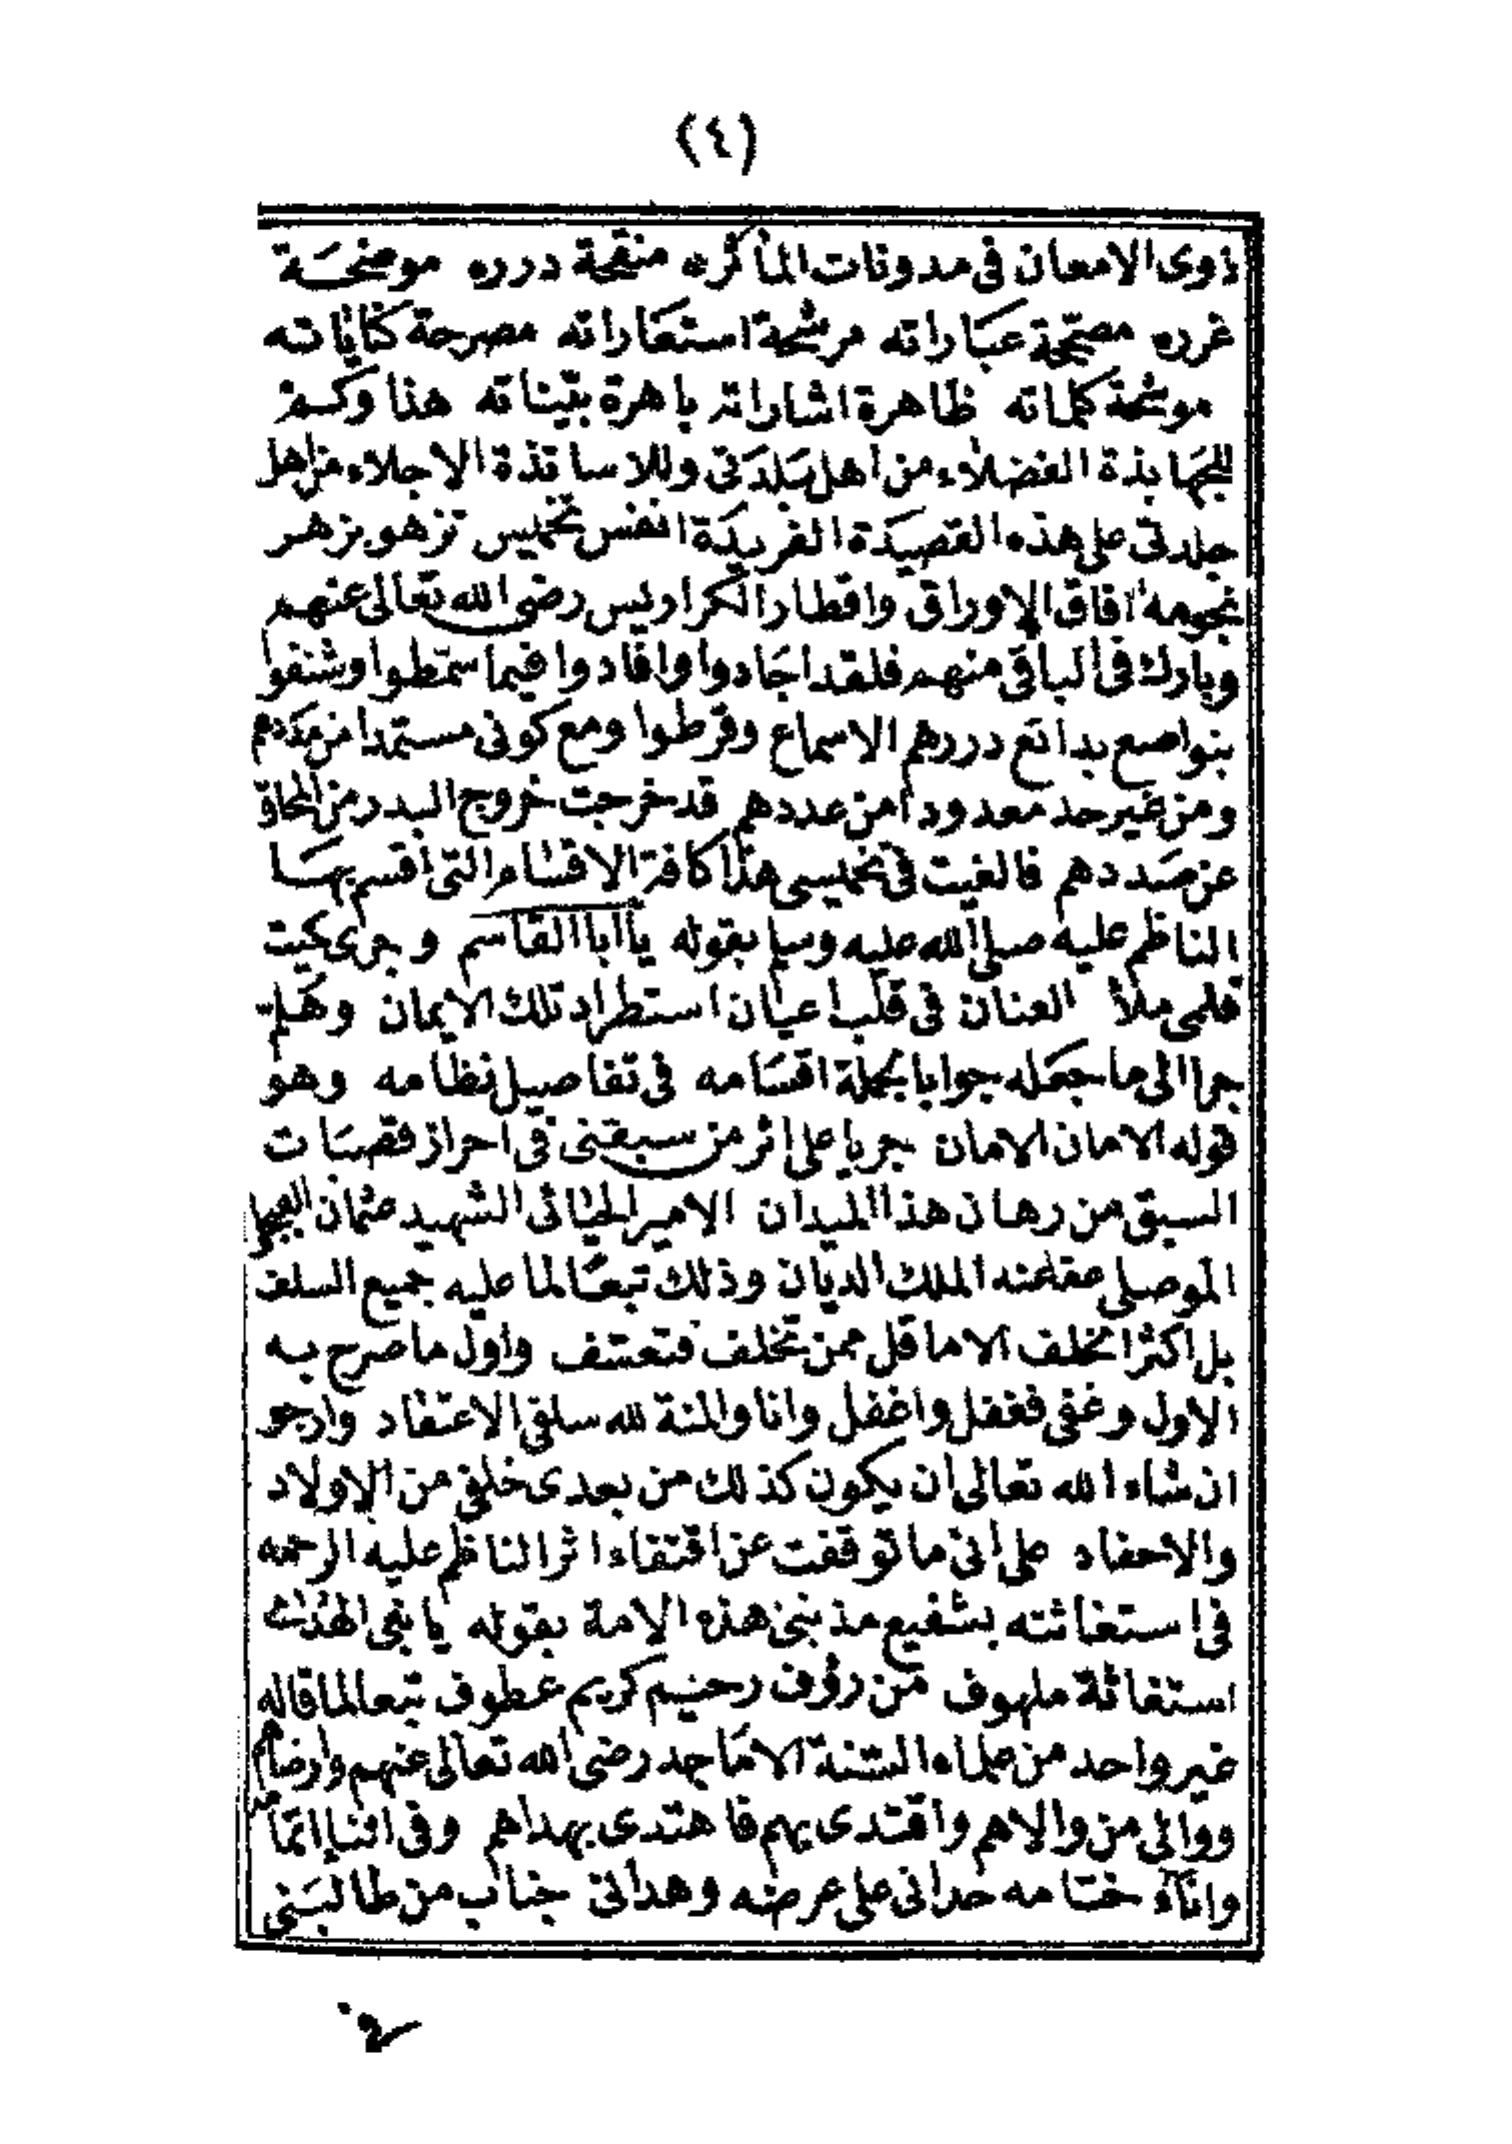 (٤)
ذوى الامعان فى مدونات المأثره منقحة درره موضحة
غرره مصححة عباراته مرشحة استعاراته مصرحة كناياته
موشحة كلماته ظاهرة اشاراته باهرة بيناته هذا وكم
للجهابذة الفضلاء من اهل بلدتى وللاساتذة الاجلاء من اهل
جلدتى على هذه القصيدة الفريدة انفس تخميس تزهو بزهر
نجومه افاق الاوراق واقطار الكراريس رضى الله تعالى عنهم
وبارك فى الباقى منهم فلقد اجادوا وافادوا فيما سمطوا وشنفوا
بنواصع بدائع دررهم الاسماع وقرطوا ومع كونى مستمدا من مددهم
ومن غير حد معدودا من عددهم قد خرجت خروج البدر من المحاق
عن صددهم فالغيت فى تخميسى هذا كافة الاقسام التى اقسم بها
الناظم عليه صلى الله عليه وسلم بقوله يا ابا القاسم وجرى كميت
قلمى ملأ العنان فى قلب اعيان استطراد تلك الايمان وهلم
جرا الى ما جعله جوابا لجملة اقسامه فى تفاصيل نظامه وهو
قوله الامان الامان جريا على اثر من سبقنى فى احراز قصبات
السبق من رهان هذا الميدان الامير الحيائى الشهيد عثمان
الموصلى عفا عنه الملك الديان وذلك تبعا لما عليه جميع السلف
بل اكثر الخلف الا ما قل ممن تخلف فتعسف واول ما صرح به
الاول وغنى فغفل واغفل وانا والمنة لله سلفى الاعتقاد وارجو
ان شاء الله تعالى ان يكون كذلك من بعدى خلفى من الاولاد
والاحفاد على انى ما توقفت عن اقتفاء اثر الناظم عليه الرحمه
فى استغاثته بشفيع مذنبى هذه الامة بقوله يا نبى الهدى
استغاثة ملهوف من رؤف رحيم كريم عطوف تبعا لما قاله
غير واحد من علماء السنة الاماجد رضى الله تعالى عنهم وارضاهم
ووالى من والاهم واقتدى بهم فاهتدى بهداهم وفى اثناء اتمامه
وانآء ختامه حدانى على عرضه وهدانى جناب من طالبنى